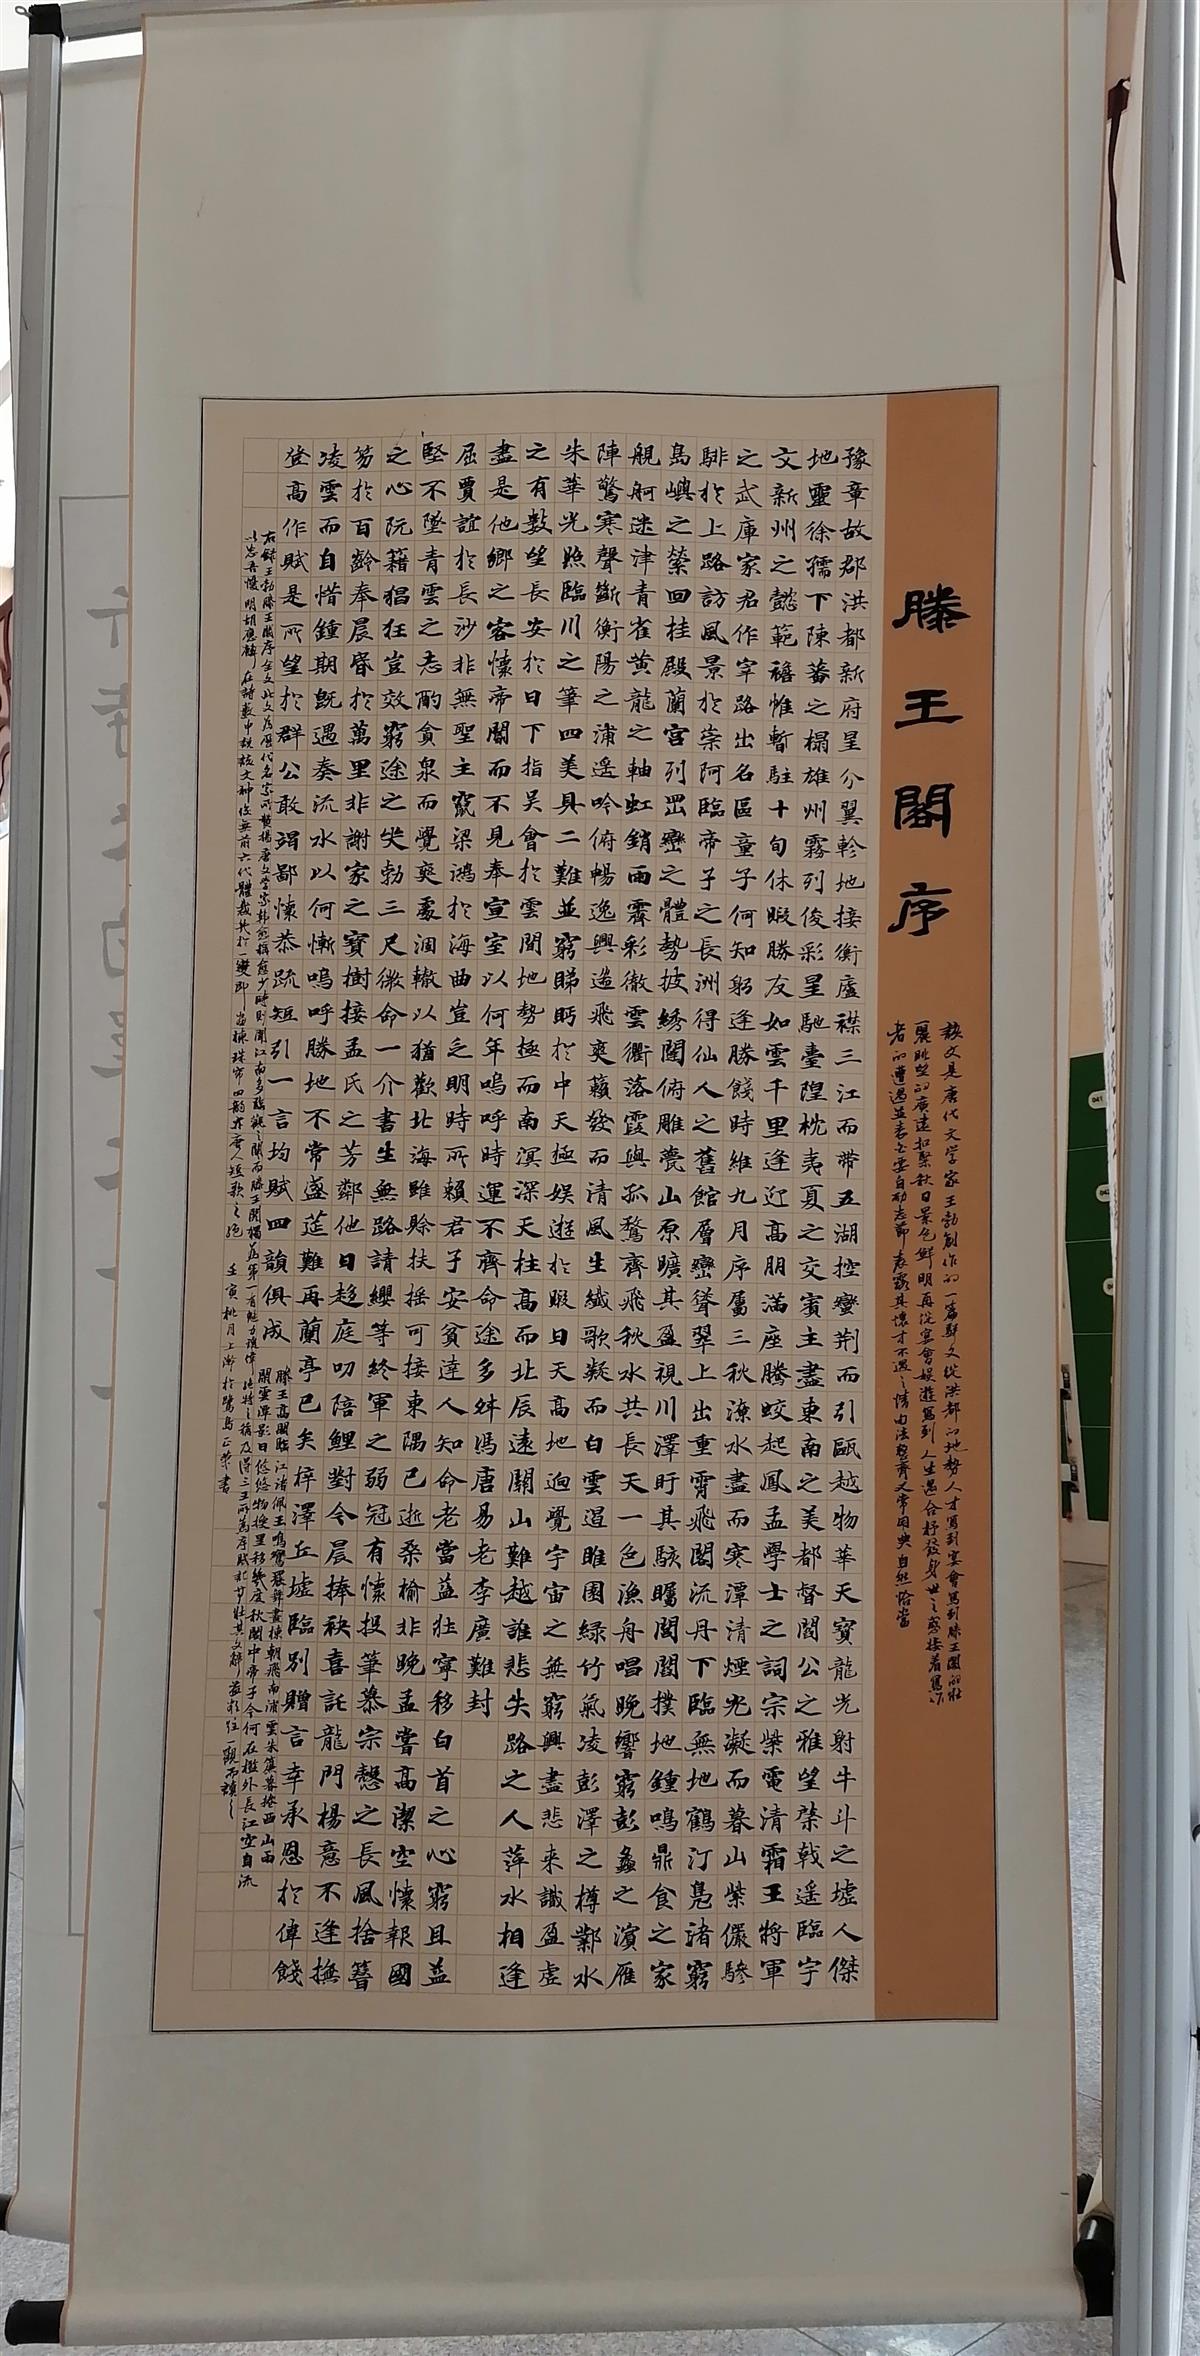 滕王閣序
該文是唐代文學家王勃創作的一篇駢文從洪都的地勢人才寫到宴會寫到滕王閣的壯
麗眺望的廣遠扣緊秋日景色鮮明再從宴會娛遊寫到人生遇合抒發身世之感接着寫作
者的遭遇並表白要自勵志節表露其懷才不遇之情由法整齊又常用典自然恰當
豫章故郡洪都新府星分翼軫地接衡廬襟三江而帶五湖控蠻荊而引甌越物華天寶龍光射牛斗之墟人傑
地靈徐孺下陳蕃之榻雄州霧列俊彩星馳臺隍枕夷夏之交賓主盡東南之美都督閻公之雅望棨戟遙臨宇
文新州之懿範襜帷暫駐十旬休暇勝友如雲千里逢迎高朋滿座騰蛟起鳳孟學士之詞宗紫電清霜王將軍
之武庫家君作宰路出名區童子何知躬逢勝餞時維九月序屬三秋潦水盡而寒潭清煙光凝而暮山紫儼驂
騑於上路訪風景於崇阿臨帝子之長洲得仙人之舊館層巒聳翠上出重霄飛閣流丹下臨無地鶴汀鳧渚窮
島嶼之縈回桂殿蘭宮列岡巒之體勢披綉闥俯雕甍山原曠其盈視川澤盱其駭矚閭閻撲地鍾鳴鼎食之家
艦舸迷津青雀黃龍之軸虹銷雨霽彩徹雲衢落霞與孤鶩齊飛秋水共長天一色漁舟唱晚響窮彭蠡之濱雁
陣驚寒聲斷衡陽之浦遙吟俯暢逸興遄飛爽籟發而清風生纖歌凝而白雲遏睢園綠竹氣凌彭澤之樽鄴水
朱華光照臨川之筆四美具二難並窮睇眄於中天極娛遊於暇日天高地迥覺宇宙之無窮興盡悲來識盈虛
之有數望長安於日下指吳會於雲間地勢極而南溟深天柱高而北辰遠關山難越誰悲失路之人萍水相逢
盡是他鄉之客懷帝閽而不見奉宣室以何年嗚呼時運不齊命途多舛馮唐易老李廣難封
屈賈誼於長沙非無聖主竄梁鴻於海曲豈乏明時所賴君子安貧達人知命老當益壯寧移白首之心窮且益
堅不墜青雲之志酌貪泉而覺爽處涸轍以猶歡北海雖賒扶搖可接東隅已逝桑榆非晚孟嘗高潔空懷報國
之心阮籍猖狂豈效窮途之哭勃三尺微命一介書生無路請纓等終軍之弱冠有懷投筆慕宗愨之長風捨簪
笏於百齡奉晨昏於萬里非謝家之寶樹接孟氏之芳鄰他日趨庭叨陪鯉對今晨捧袂喜託龍門楊意不逢撫
凌雲而自惜鍾期既遇奏流水以何慚嗚呼勝地不常盛筵難再蘭亭已矣梓澤丘墟臨別贈言幸承恩於偉餞
登高作賦是所望於群公敢竭鄙懷恭疏短引一言均賦四韻俱成
滕王高閣臨江渚佩玉鳴鸞罷歌舞畫棟朝飛南浦雲朱簾暮捲西山雨
閒雲潭影日悠悠物換星移幾度秋閣中帝子今何在檻外長江空自流
右錄王勃滕王閣序全文此文為歷代名家所贊揚唐文學家韓愈稱愈少時則聞江南多臨觀之閣而滕王閣獨為第一有魁力瑰偉絕特之稱及得三王所為序賦記等壯其文辭益欲往一觀而讀之
以忘吾憂明胡應麟在詩藪中說
六代體裁於一變即畫棟珠簾四韻亦唐人短歌之絕 壬寅桃月上澣於鷺島正榮書